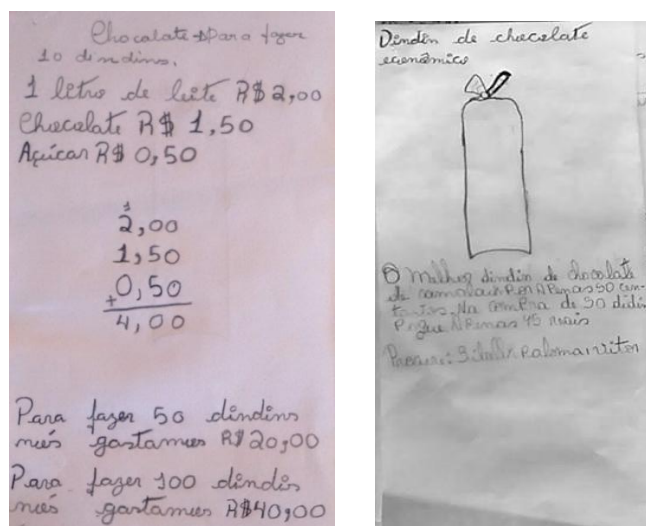 Chocolate → Para fazer
10 dindins.
1 litro de leite R$ 2,00
Chocolate R$ 1,50
Açúcar R$ 0,50
1
2,00
1,50
+0,50
4,00
Para fazer 50 dindins
nós gastamos R$ 20,00
Para fazer 100 dindis
nós gastamos R$ 40,00
Dindin de chocolate
econômico
O Melhor dindin de chocolate
de camalaú Por APenas 50 cen-
tavos. Na comPra de 50
Pague APenas 45 reais
Paloma